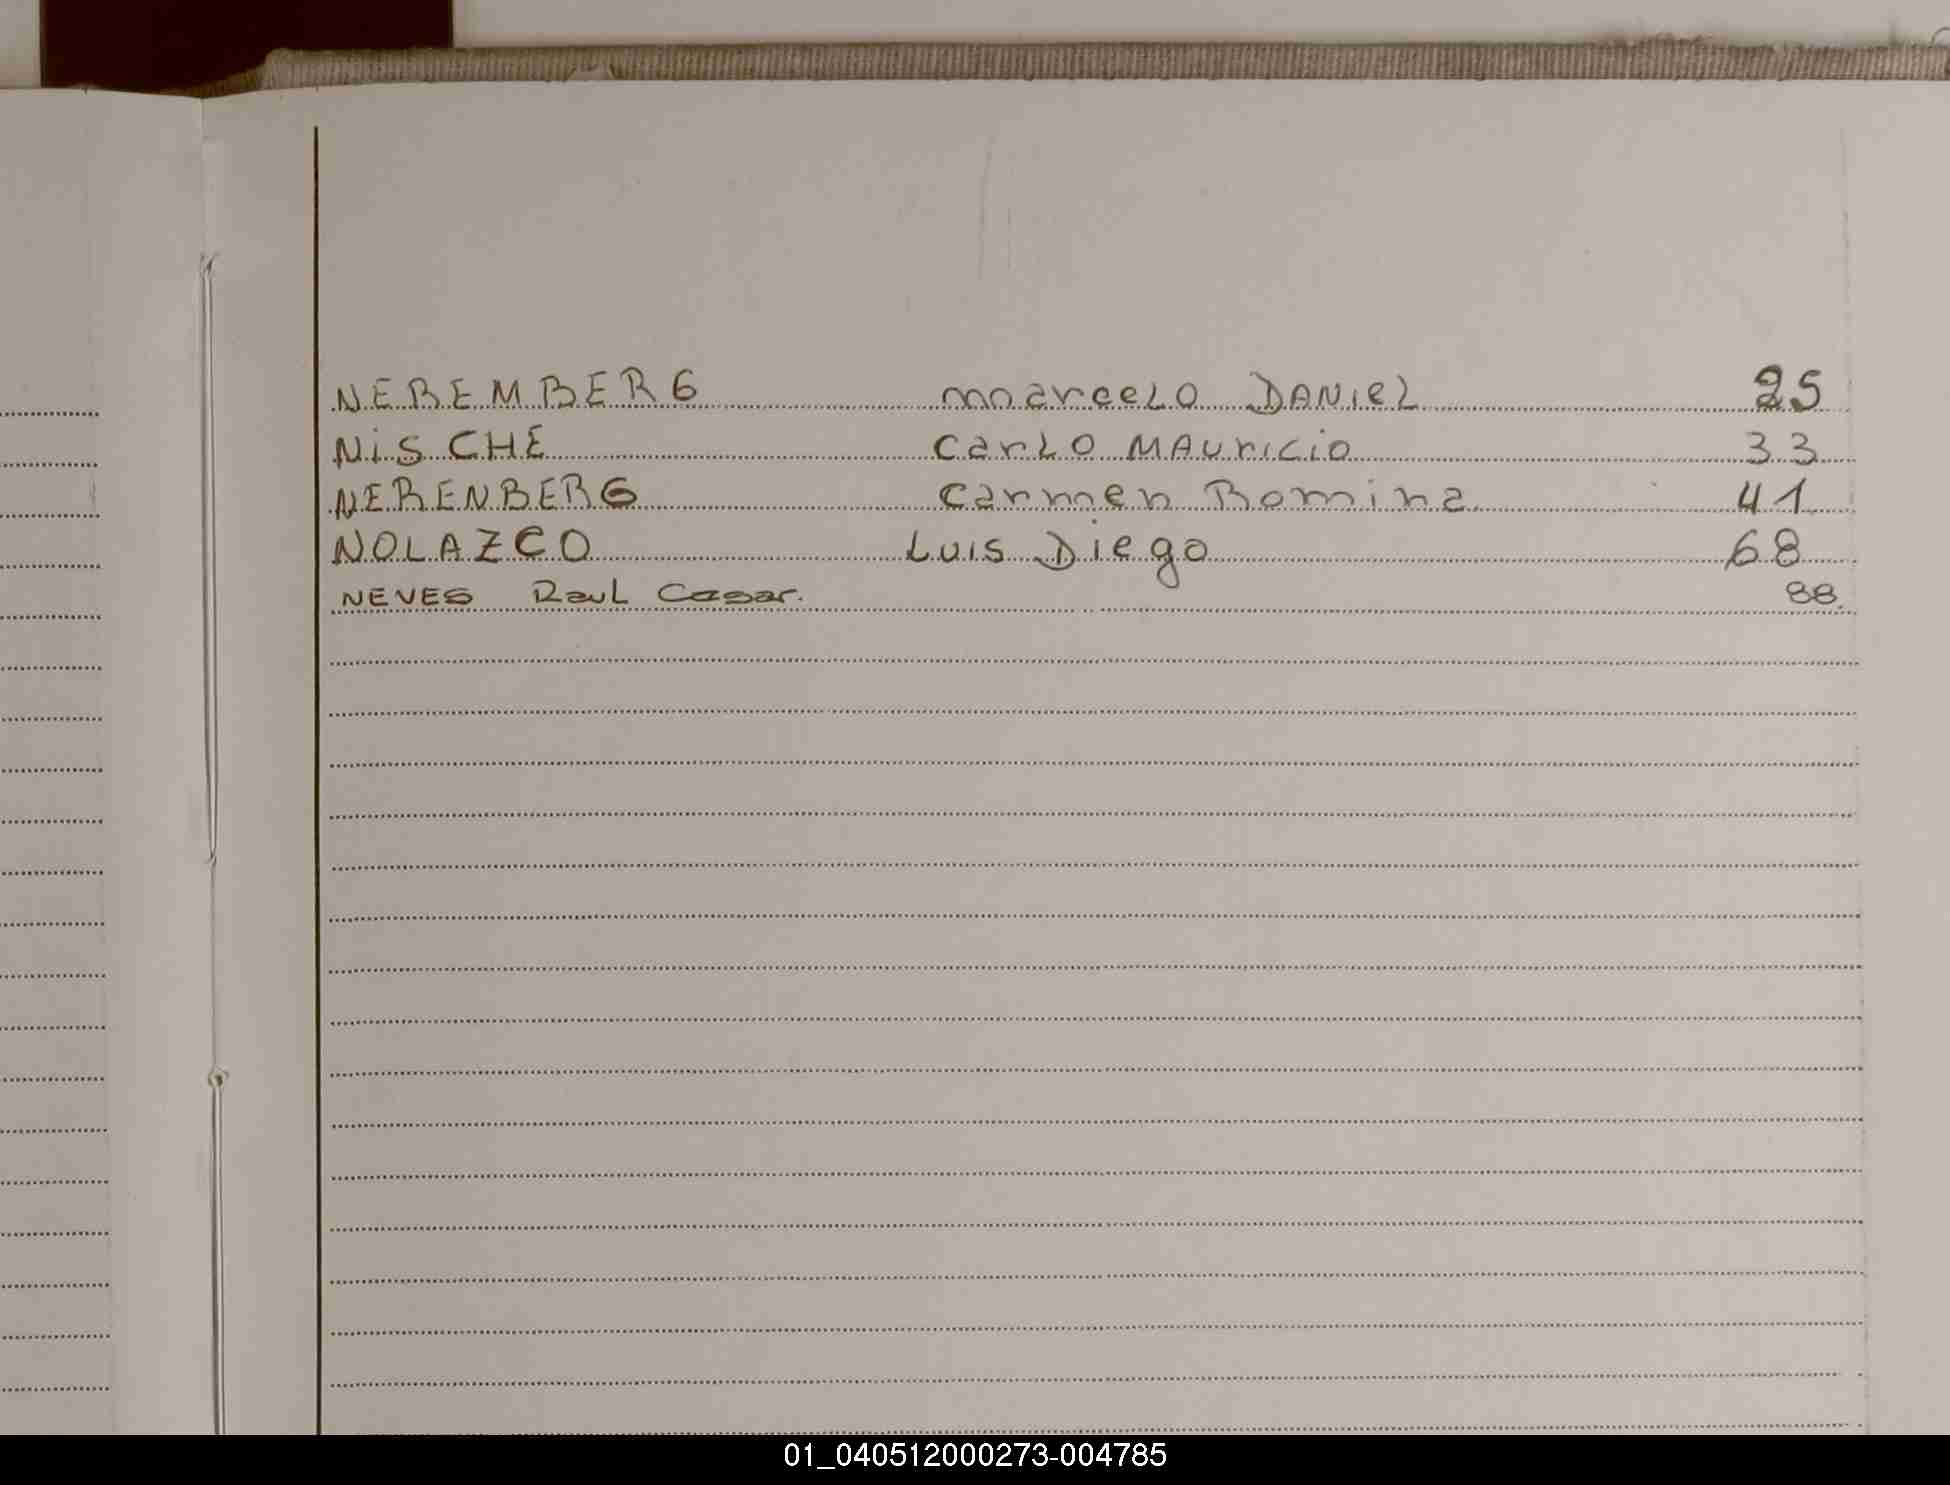 NEREMBERG marceLO DANieL 25
NiSCHE carLO MAuricio 33
NERENBERG carmen Romina 41
NOLAZCO Luis Diego 68
NEVES RauL Cesar. 88.
01_040512000273-004785